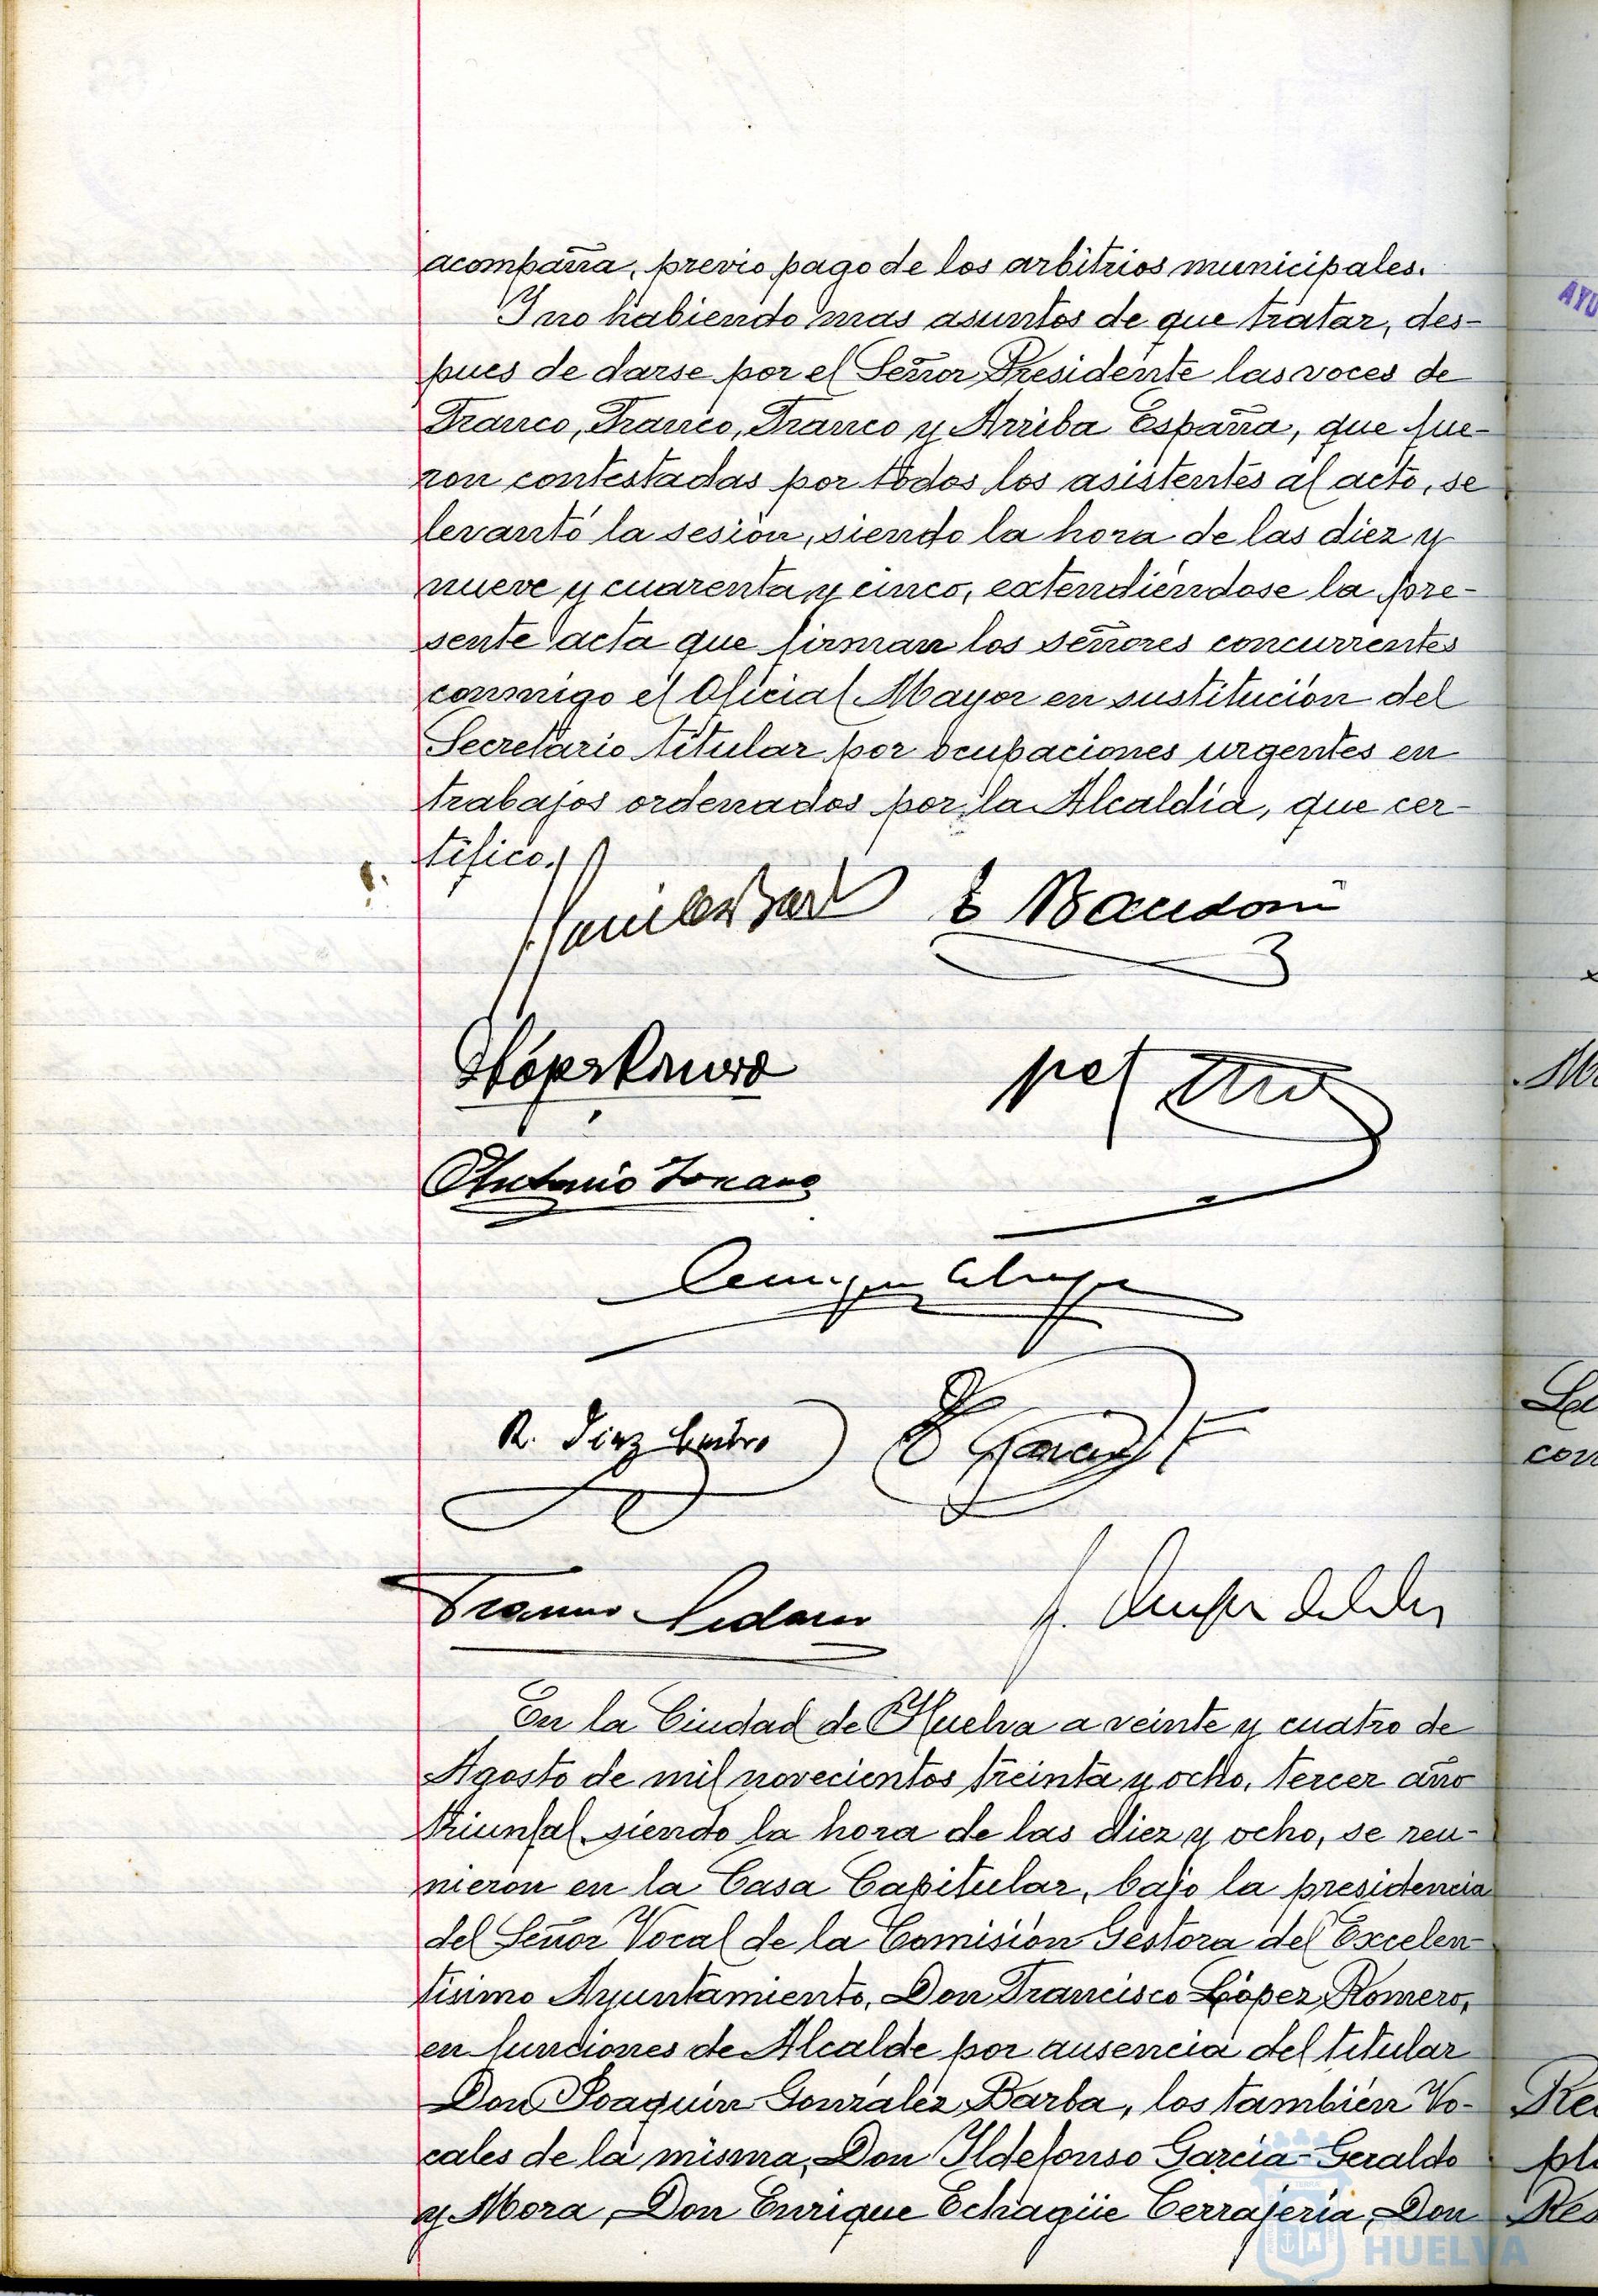 acompaña, previo pago de los arbitrios municipales.
Y no habiendo mas asuntos de que tratar, des-
pues de darse por el Señor Presidente las voces de
Franco, Franco, Franco y Arriba España, que fue-
ron contestadas por todos los asistentes al acto, se
levantó la sesión, siendo la hora de las diez y
nueve y cuarenta y cinco, extendiéndose la pre-
sente acta que firman los señores concurrentes
conmigo el Oficial Mayor en sustitución del
Secretario titular por ocupaciones urgentes en
trabajos ordenados por la Alcaldía, que cer-
tifico.
Antonio
R. Diaz
En la Ciudad de Huelva a veinte y cuatro de
Agosto de mil novecientos treinta y ocho, tercer año
triunfal siendo la hora de las diez y ocho, se reu-
nieron en la Casa Capitular, bajo la presidencia
del Señor Vocal de la Comisión Gestora del Excelen-
tísimo Ayuntamiento, Don Francisco López Romero,
en funciones de Alcalde por ausencia del titular
Don Joaquín González Barba, los también Vo-
cales de la misma, Don Ildefonso García-Geraldo
y Mora, Don Enrique Echagüe Cerrajería, Don
HUELVA